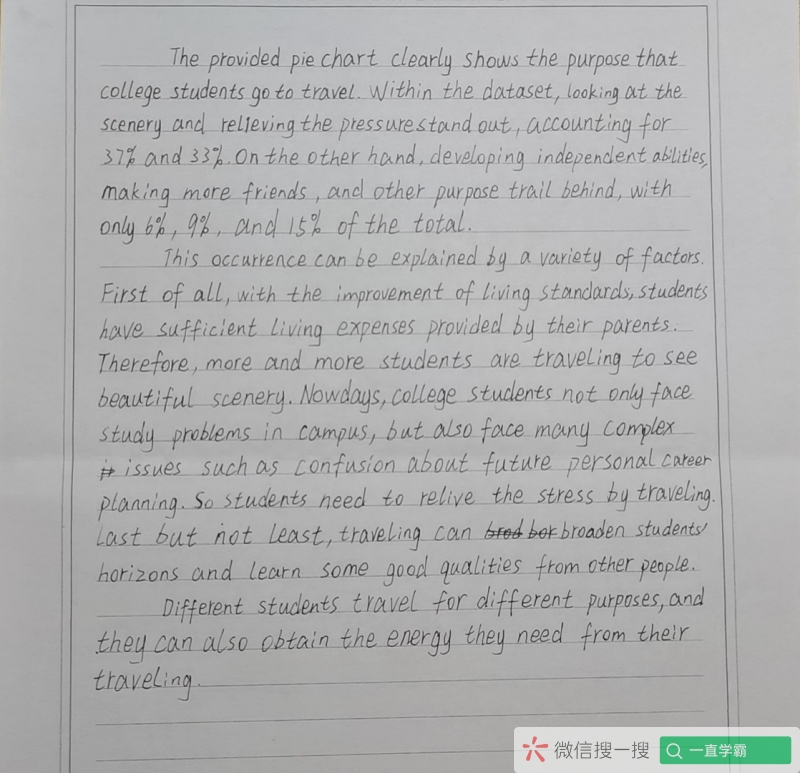 The provided pie chart clearly shows the purpose that
college students go to travel. Within the dataset, looking at the
scenery and relieving the pressure stand out, accounting for
37% and 33%. On the other hand, developing independent abilities,
making more friends, and other purpose trail behind, with
only 6%, 9%, and 15% of the total.
This occurrence can be explained by a variety of factors.
First of all, with the improvement of living standards, students
have sufficient living expenses provided by their parents.
Therefore, more and more students are traveling to see
beautiful scenery. Nowdays, college students not only face
study problems in campus, but also face many complex
issues such as confusion about future personal career
planning. So students need to relive the stress by traveling.
Last but not least, traveling can broaden students'
horizons and learn some good qualities from other people.
Different students travel for different purposes, and
they can also obtain the energy they need from their
traveling.
微信搜一搜
一直学霸